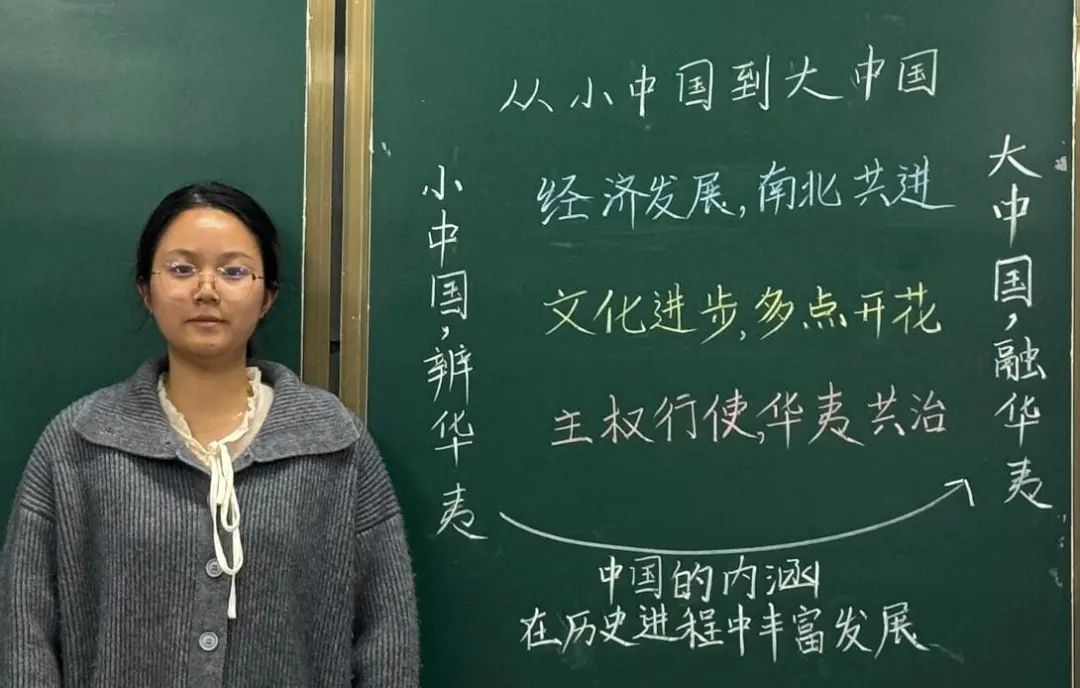 从小中国到大中国
小中国,辨华夷
经济发展,南北共进
文化进步,多点开花
主权行使,华夷共治
大中国,融华夷
中国的内涵
在历史进程中丰富发展